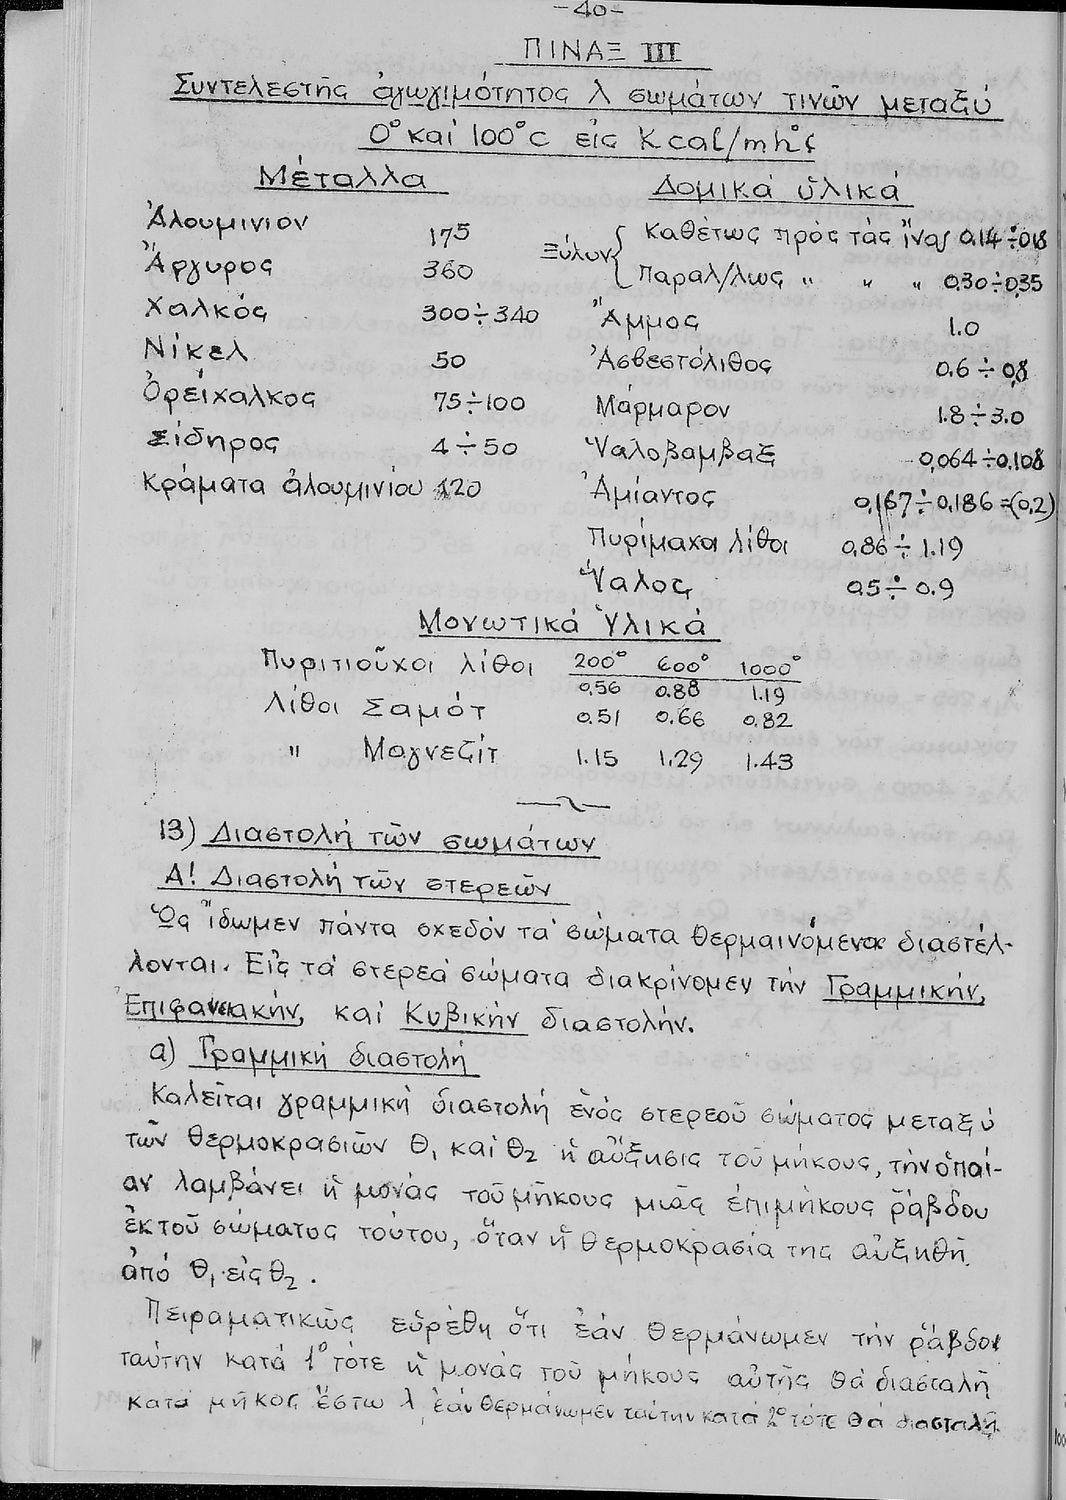 -40-
ΠΙΝΑΞ III
Συντελεστής ἀγωγιμότητος λ σωμάτων τινῶν μεταξύ
0° καί 100°C εἰς Kcal/mh°C
Μέταλλα
Ἀλουμινιον 175
Ἄργυρος 360
Χαλκός 300÷340
Νίκελ 50
Ὀρείχαλκος 75÷100
Σίδηρος 4÷50
Κράματα ἀλουμινίου 120
Δομικά ὕλικά
Ξύλον { Καθέτως πρός τάς ἵνας 0.14÷0,18
Παραλ/λως " " " 0.30÷0,35
Ἄμμος 1.0
Ἀσβεστόλιθος 0.6÷0,8
Μάρμαρον 1.8÷3.0
Ὑαλοβαμβαξ 0,064÷0.108
Ἀμίαντος 0,167÷0,186=(0,2)
Πυρίμαχοι λίθοι 0,86÷1.19
Ὕαλος 0.5÷0.9
Μονωτικά Ὑλικά
Πυριτιοῦχοι λίθοι 200° 600° 1000°
0.56 0.88 1.19
Λίθοι Σαμότ 0.51 0.66 0.82
" Μαγνεζίτ 1.15 1.29 1.43
13) Διαστολή τῶν σωμάτων
Α! Διαστολή τῶν στερεῶν
Ὡς ἴδωμεν πάντα σχεδόν τά σώματα θερμαινόμενα διαστέλ-
λονται. Εἰς τά στερεά σώματα διακρίνομεν τήν Γραμμικήν,
Ἐπιφανειακήν, καί Κυβικήν διαστολήν.
α) Γραμμική διαστολή
Καλεῖται γραμμική διαστολή ἑνός στερεοῦ σώματος μεταξύ
τῶν θερμοκρασιῶν θ₁ καί θ₂ ἡ αὔξησις τοῦ μήκους, τήν ὁποί-
αν λαμβάνει ἡ μονάς τοῦ μήκους μιᾶς ἐπιμήκους ῥάβδου
ἐκ τοῦ σώματος τούτου, ὅταν ἡ θερμοκρασία της αὐξηθῆ
ἀπό θ₁ εἰς θ₂.
Πειραματικῶς εὑρέθη ὅτι ἐάν θερμάνωμεν τήν ῥάβδον
ταύτην κατά 1° τότε ἡ μονάς τοῦ μήκους αὐτῆς θά διασταλῆ
κατά μῆκος ἔστω λ, ἐάν θερμάνωμεν ταύτην κατά 2° τότε θά διασταλῆ